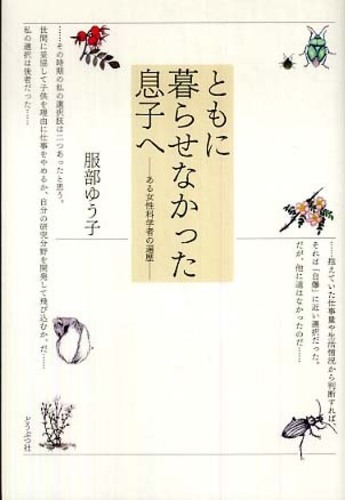 ともに
暮らせなかった
息子へ
——ある女性科学者の遍歴——
服部ゆう子
……抱えていた仕事量や生活情況から判断すれば、
それは「自爆」に近い選択だった。
だが、他に道はなかったのだ……
……その時期の私の選択肢は二つあったと思う。
世間に妥協して子供を理由に仕事をやめるか、自分の研究分野を開発して飛び込むか、だ……
私の選択は後者だった……
どうぶつ社